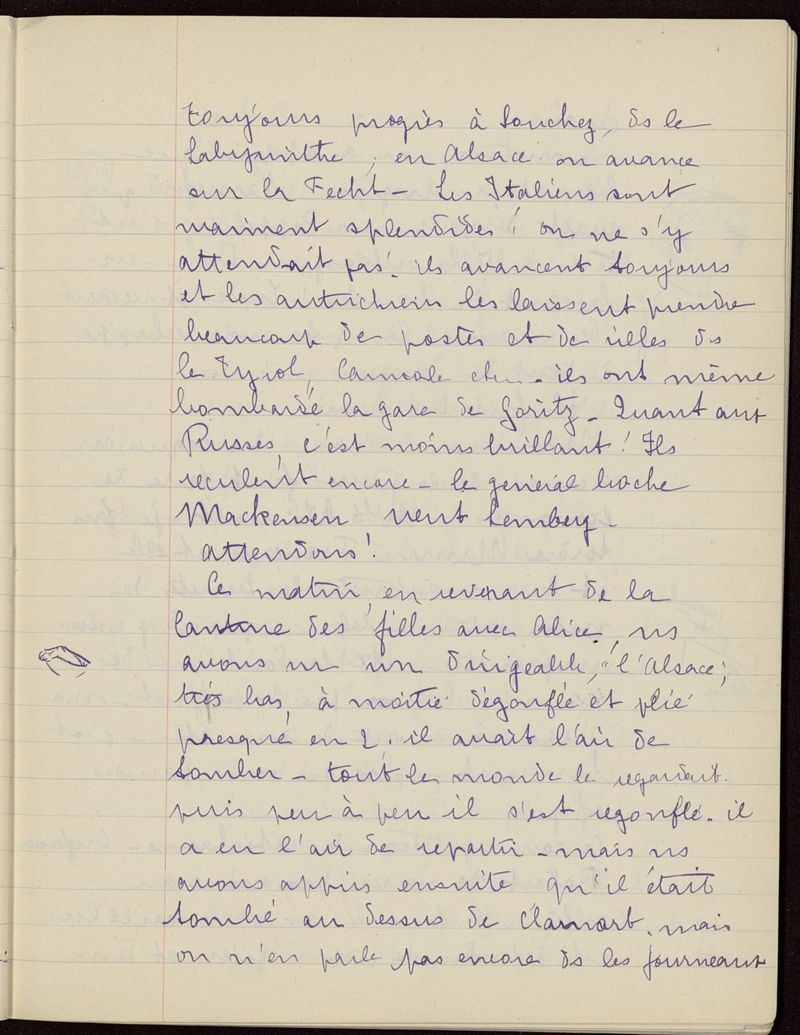 toujours progrès à Souchez, ds le
Labyrinthe, en Alsace on avance
sur la Fecht – Les Italiens sont
vraiment splendides ! on ne s'y
attendait pas ! ils avancent toujours
et les autrichiens les laissent prendre
beaucoup de postes et de villes ds
le Tyrol, Carniole etc. – ils ont même
bombardé la gare de Goritz – Quant aux
Russes, c'est moins brillant ! Ils
reculent encore – le général boche
Mackensen veut Lemberg –
attendons !
Ce matin, en revenant de la
Cantine des filles avec Alice, ns
avons vu un dirigeable, "l'Alsace",
très bas, à moitié dégonflé et plié
presque en 2. il avait l'air de
tomber – tout le monde le regardait.
puis peu à peu il s'est regonflé. il
a eu l'air de repartir – mais ns
avons appris ensuite qu'il était
tombé au dessus de Clamart. mais
on n'en parle pas encore ds les journeaux